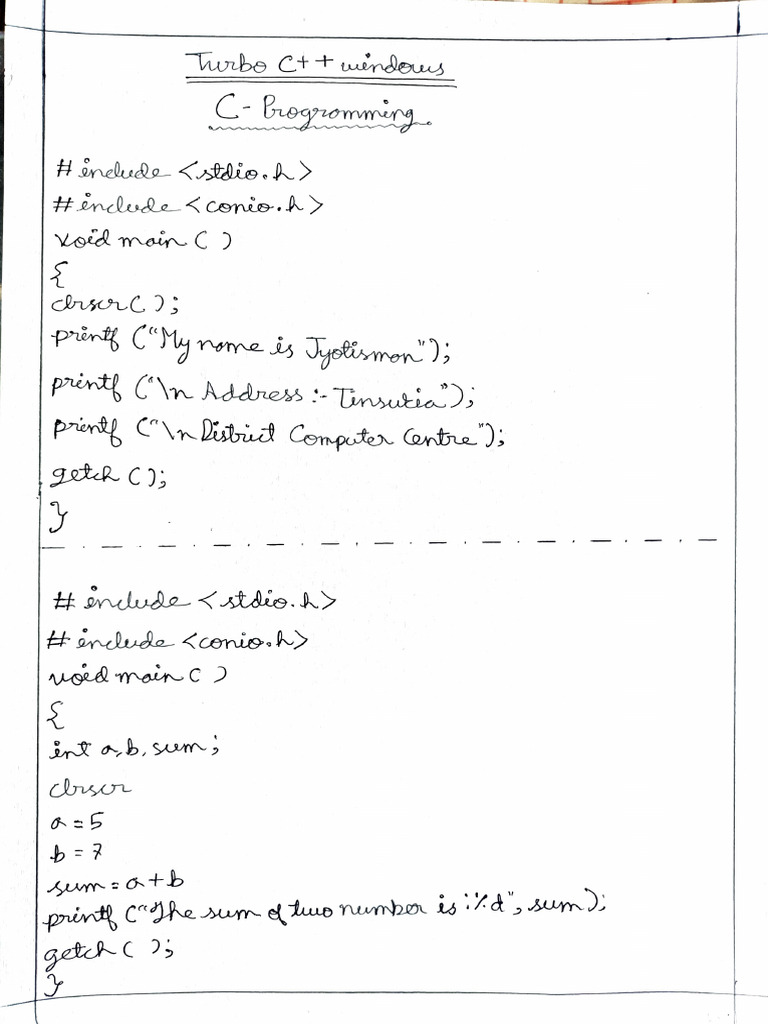 Turbo C++ windows
C - Programming
# include <stdio.h>
# include <conio.h>
void main ( )
{
clrscr ( );
printf ("My name is Jyotismon");
printf ("\n Address :- Tinsukia");
printf ("\n District Computer Centre");
getch ( );
}
# include <stdio.h>
# include <conio.h>
void main ( )
{
int a, b, sum;
clrscr
a = 5
b = 7
sum = a + b
printf ("The sum of two number is :%d", sum);
getch ( );
}